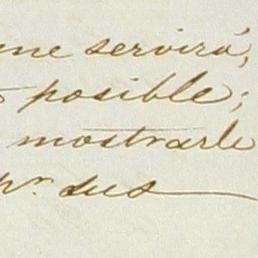 me servirá,
posible;
mostrarle
pr. sus